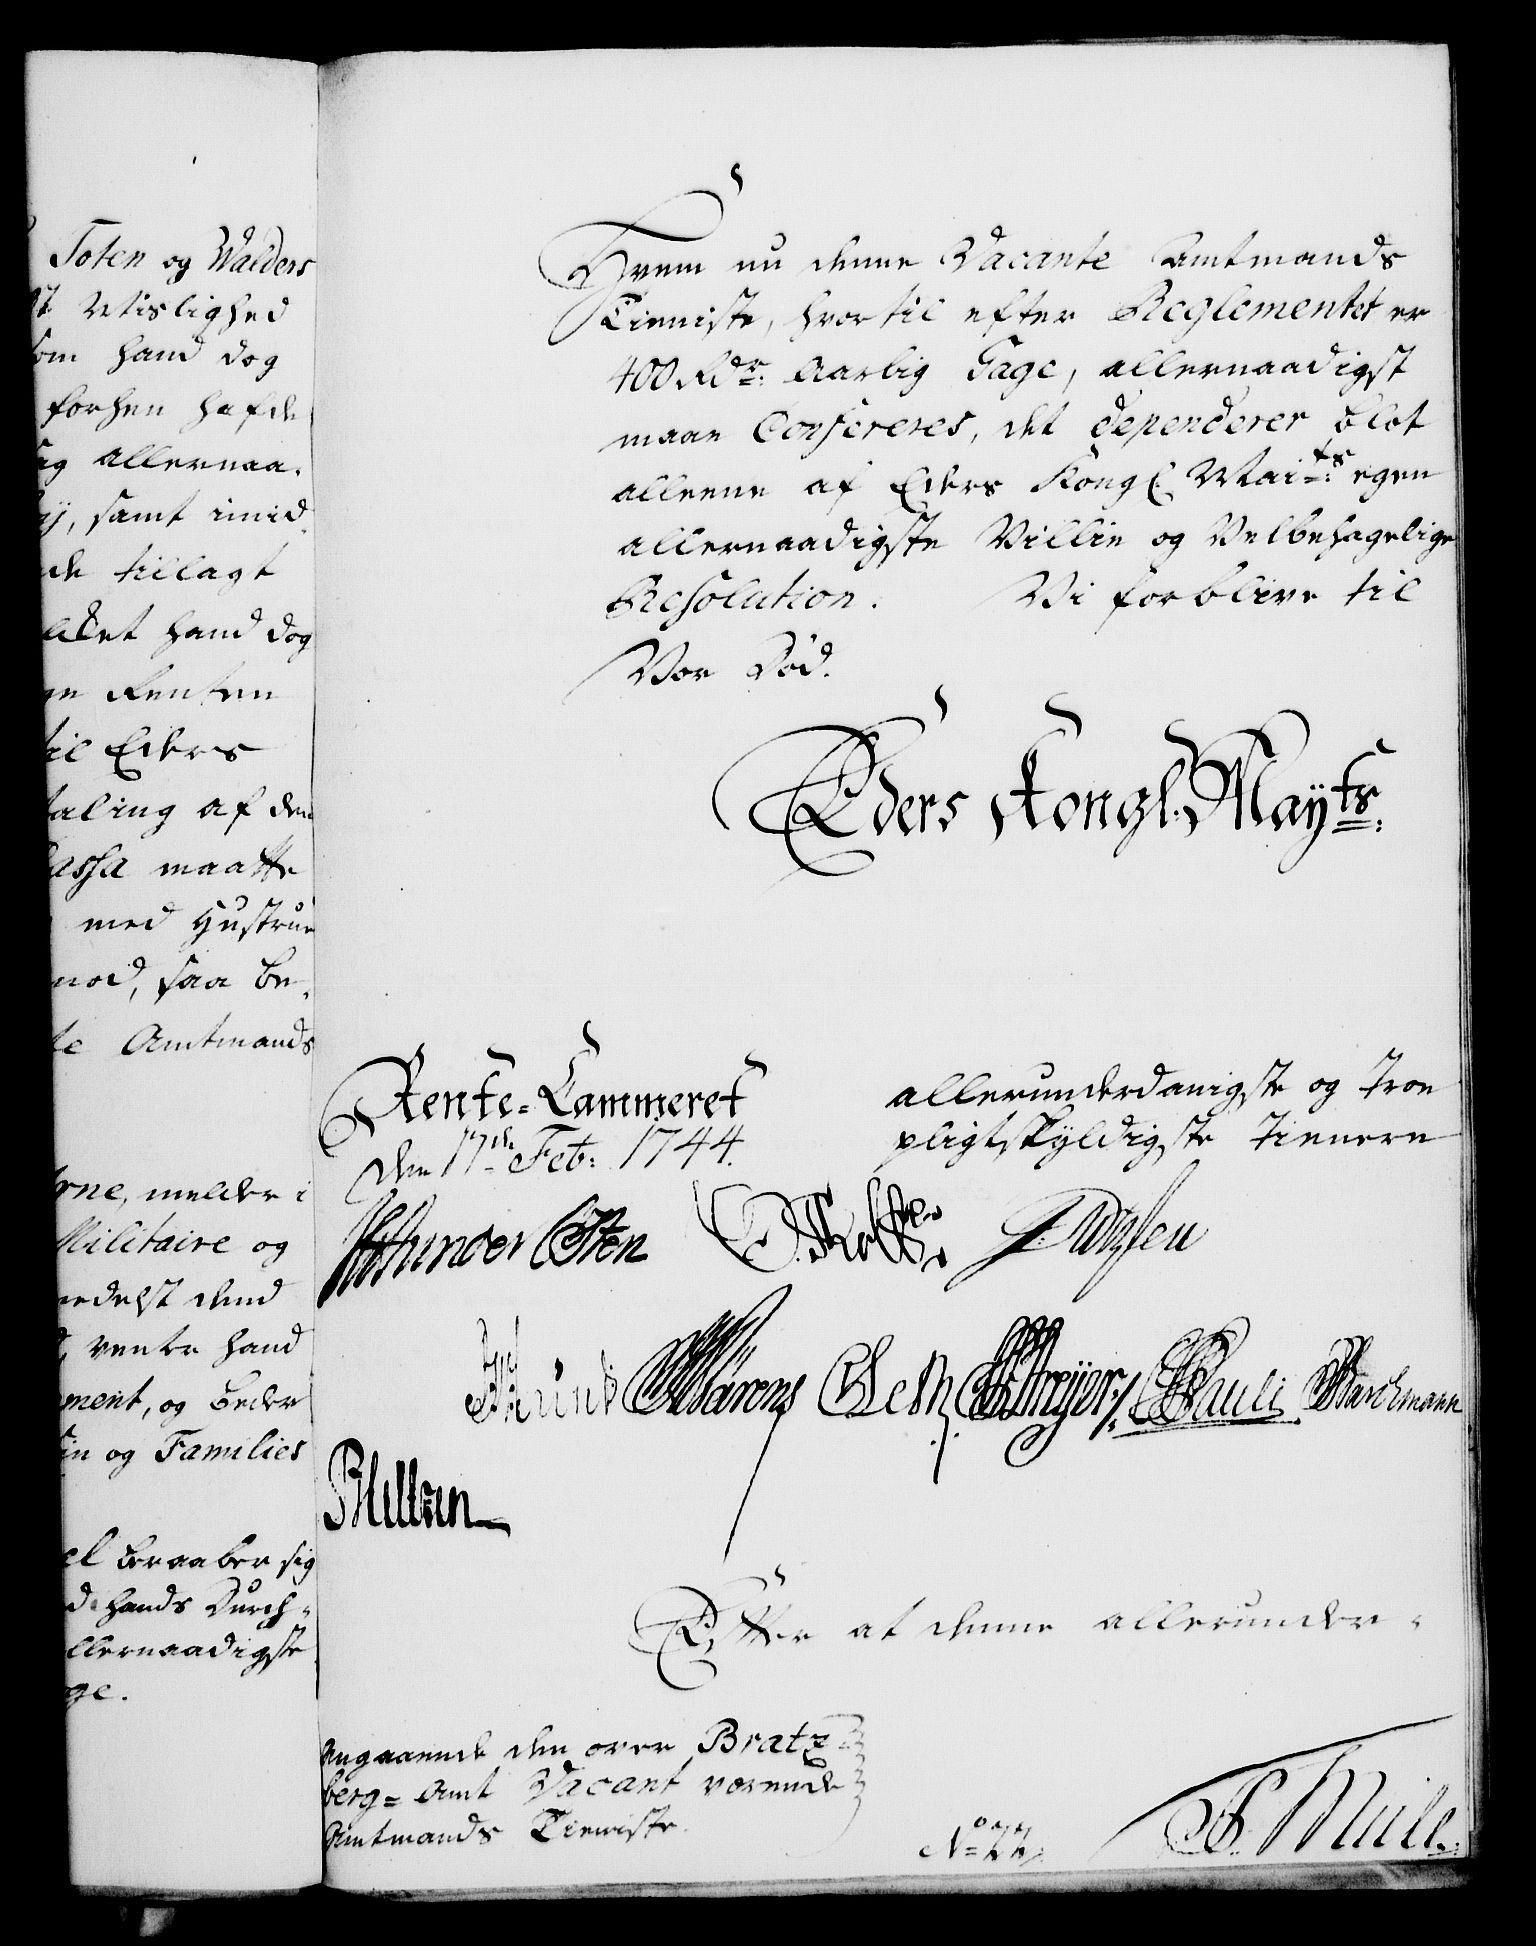 Toten og Walders
Vislighed
som hand dog
forhen hafde
allernaa-
samt imid
de tillagt
hand dog
Renten
til Eders
taling af den
Cassa maatte
med Hustrue
saa be-
te Amtmands
melder i
Militaire og
medelst dend
venter hand
ment, og beder
og Families
beraaber sig
hands Durch-
allernaadigste
ge.
Hvem nu denne Vacante Amtmands
Tieniste, hvortil efter Reglementet er
400 Rdr: Aarlig Gage, allernaadigst
maae Confereres, det dependerer blot
alleene af Eders Kongl Maits: egen
allernaadigste Villie og Velbehagelige
Resolution. Vi forblive til
Vor Død.
Eders Kongl. Mayts:
Rente-Cammeret
den 17de Feb: 1744.
allerunderdanigste og troe
pligtskyldigste tienere
Osten
Pauli
Efter at denne allerunder-
Angaaende den over Bratz-
berg- Amt Vacant værende
Amtmands Tieniste.
No 22.